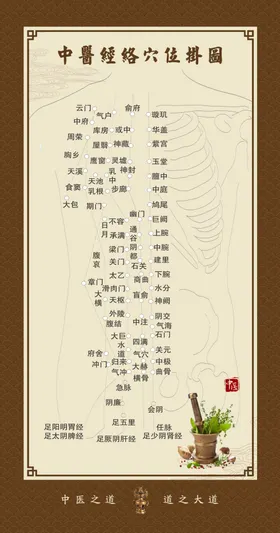 中醫經絡穴位掛圖
云门 俞府
气户 璇玑
中府
库房 或中 华盖
周荣
屋翳 神藏 紫宫
胸乡
鹰窗 灵墟 玉堂
天溪 乳中 神封
天池 膻中
食窦 乳根 步廊 中庭
大包 期门 鸠尾
幽门
日月 不容 通谷 巨阙
承满 上腕
梁门 阴都 中腕
腹哀 关门 石关 建里
太乙 商曲 下腕
章门 滑肉门 水分
大横 天枢 肓俞 神阙
外陵 阴交
腹结 中注 气海
石门
大巨 四满
水道 关元
府舍 气穴
归来 中极
冲门 气冲 大赫
横骨 曲骨
急脉
阴廉 会阴
足五里
足阳明胃经 任脉
足太阴脾经 足厥阴肝经 足少阴肾经
中医
中医之道 道之大道